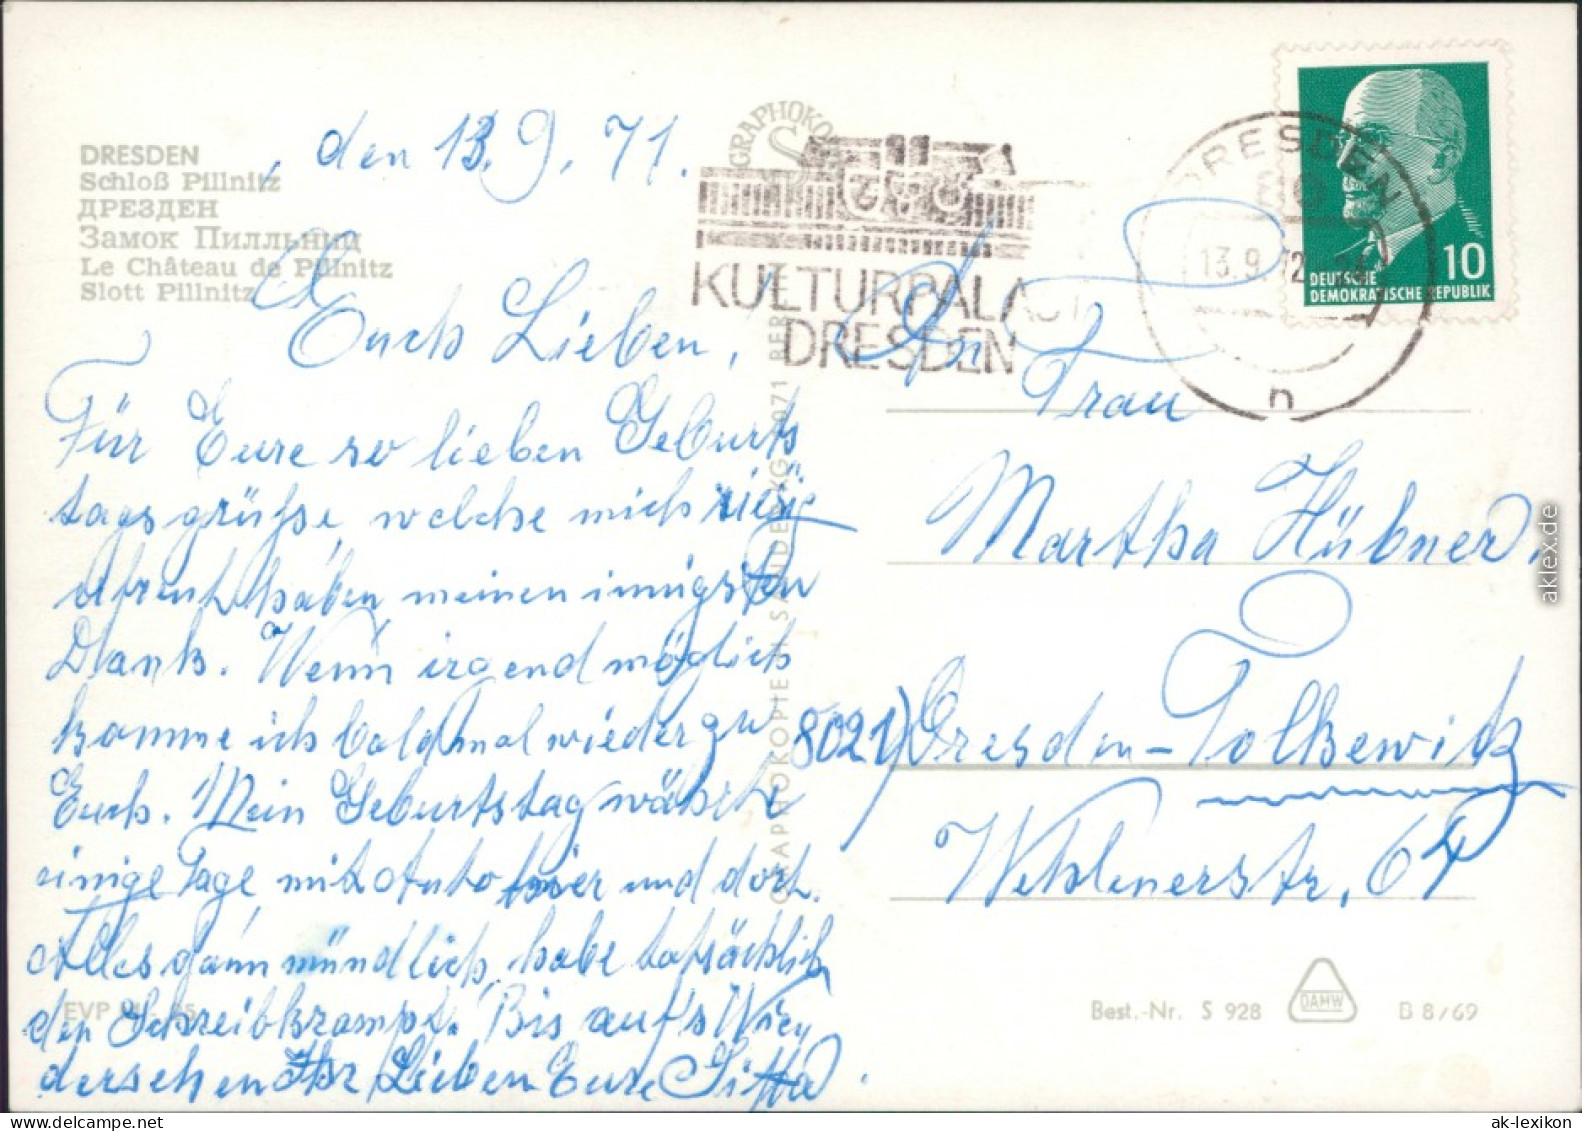 DRESDEN
Schloß Pillnitz
ДРЕЗДЕН
Замок Пилльниц
Le Château de Pillnitz
Slott Pillnitz
, den 13.9.71.
Euch Lieben,
Für Eure so lieben Geburts
tagsgrüße, welche mich riesig
erfreut haben meinen innigsten
Dank. Wenn irgend möglich
komme ich bald mal wieder zu
Euch. Mein Geburtstag währte
einige Tage mit Auto hier und dort.
Alles dann mündlich, habe tatsächlich
den Schreibkrampf. Bis auf's Wie
dersehen Ihr Lieben Eure Gitta.
EVP
GRAPHOKO
KULTURPALAST
DRESDEN
DRESDEN
13.9.72
n
DEUTSCHE
DEMOKRATISCHE REPUBLIK
10
An
Frau
Martha Hübner.
8021) Dresden-Tolkewitz
Wehlenerstr. 64
Best.-Nr. S 928 DAMW B 8/69
aklex.de
www.ak-lexikon.de